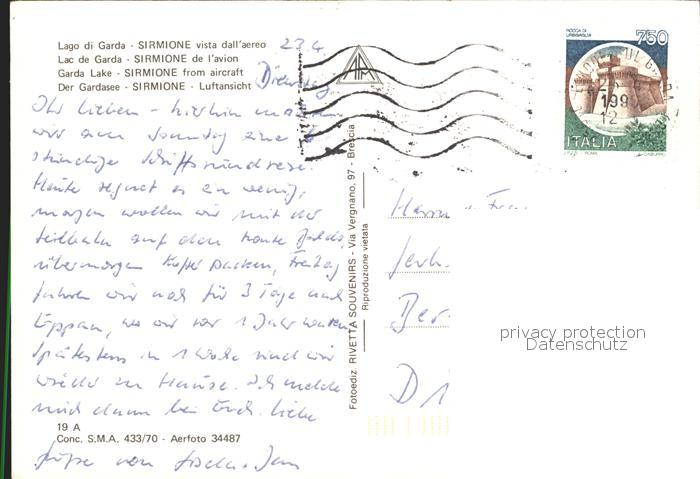 Lago di Garda - SIRMIONE vista dall'aereo
Lac de Garda - SIRMIONE de l'avion
Garda Lake - SIRMIONE from aircraft
Der Gardasee - SIRMIONE - Luftansicht
23.4.
Dienstag
Ihr Lieben - hierhin machten
wir am Sonntag eine 6
stündige Schiffsrundreise.
Heute regnet es ein wenig,
morgen wollen wir mit der
Seilbahn auf den Monte Baldo,
übermorgen Koffer packen, Freitag
fahren wir noch für 3 Tage nach
Eppan, wo wir vor 1 Jahr waren.
Spätestens in 1 Woche sind wir
wieder zu Hause. Ich melde
mich dann bei Euch. Liebe
Grüße von
19 A
Conc. S.M.A. 433/70 - Aerfoto 34487
Fotoediz. RIVETTA SOUVENIRS - Via Vergnano, 97 - Brescia
Riproduzione vietata
ROCCA DI URBISAGLIA
750
ITALIA
Herrn u. Frau
Ber
D 1
privacy protection
Datenschutz